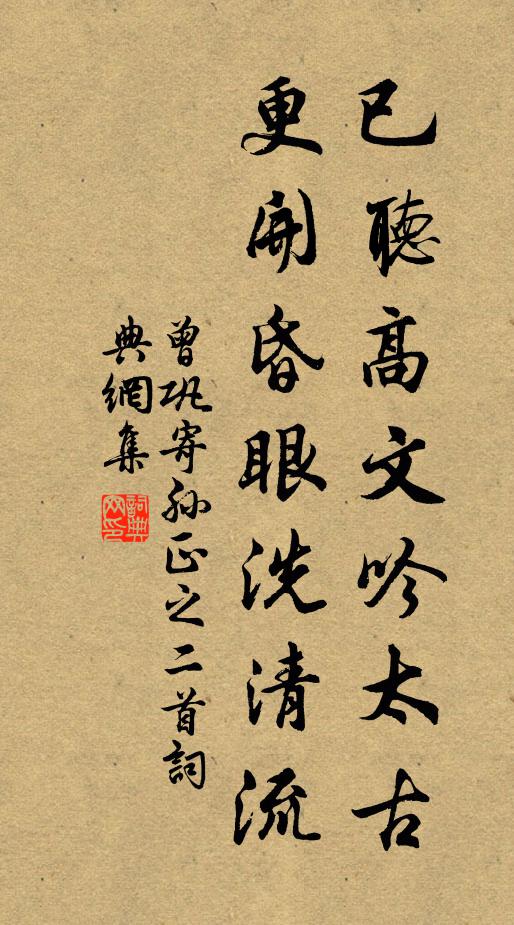 已聽高文吟太古
更開昏眼洗清流
曾鞏寄孫正之二首詞
典網集
詞典網印